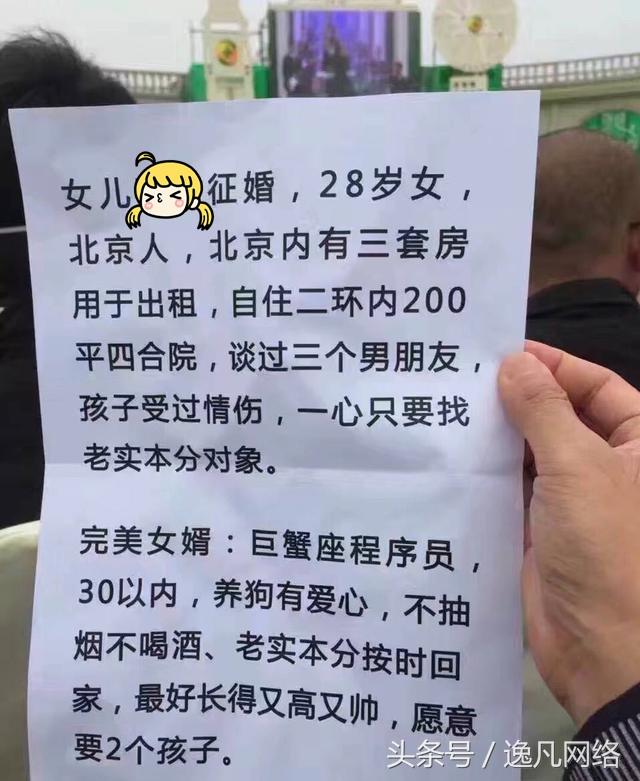 女儿征婚，28岁女，
北京人，北京内有三套房
用于出租，自住二环内200
平四合院，谈过三个男朋友，
孩子受过情伤，一心只要找
老实本分对象。
完美女婿：巨蟹座程序员，
30以内，养狗有爱心，不抽
烟不喝酒、老实本分按时回
家，最好长得又高又帅，愿意
要2个孩子。
头条号／逸凡网络